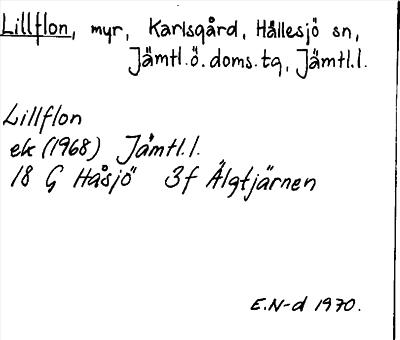 Lillflon, myr, Karlsgård, Hällesjö sn,
Jämtl.ö.doms.tg, Jämtl.l.
Lillflon
ek (1968) Jämtl.l.
18 G Håsjö 3f Älgtjärnen
E.N-d 1970.